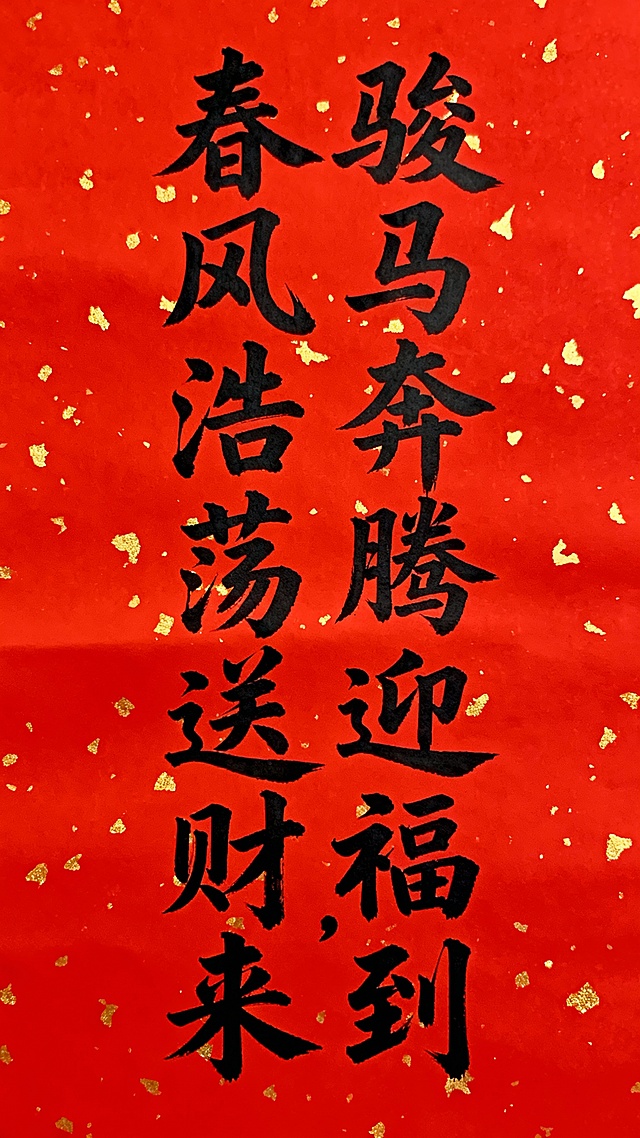 骏马奔腾迎福到，
春风浩荡送财来